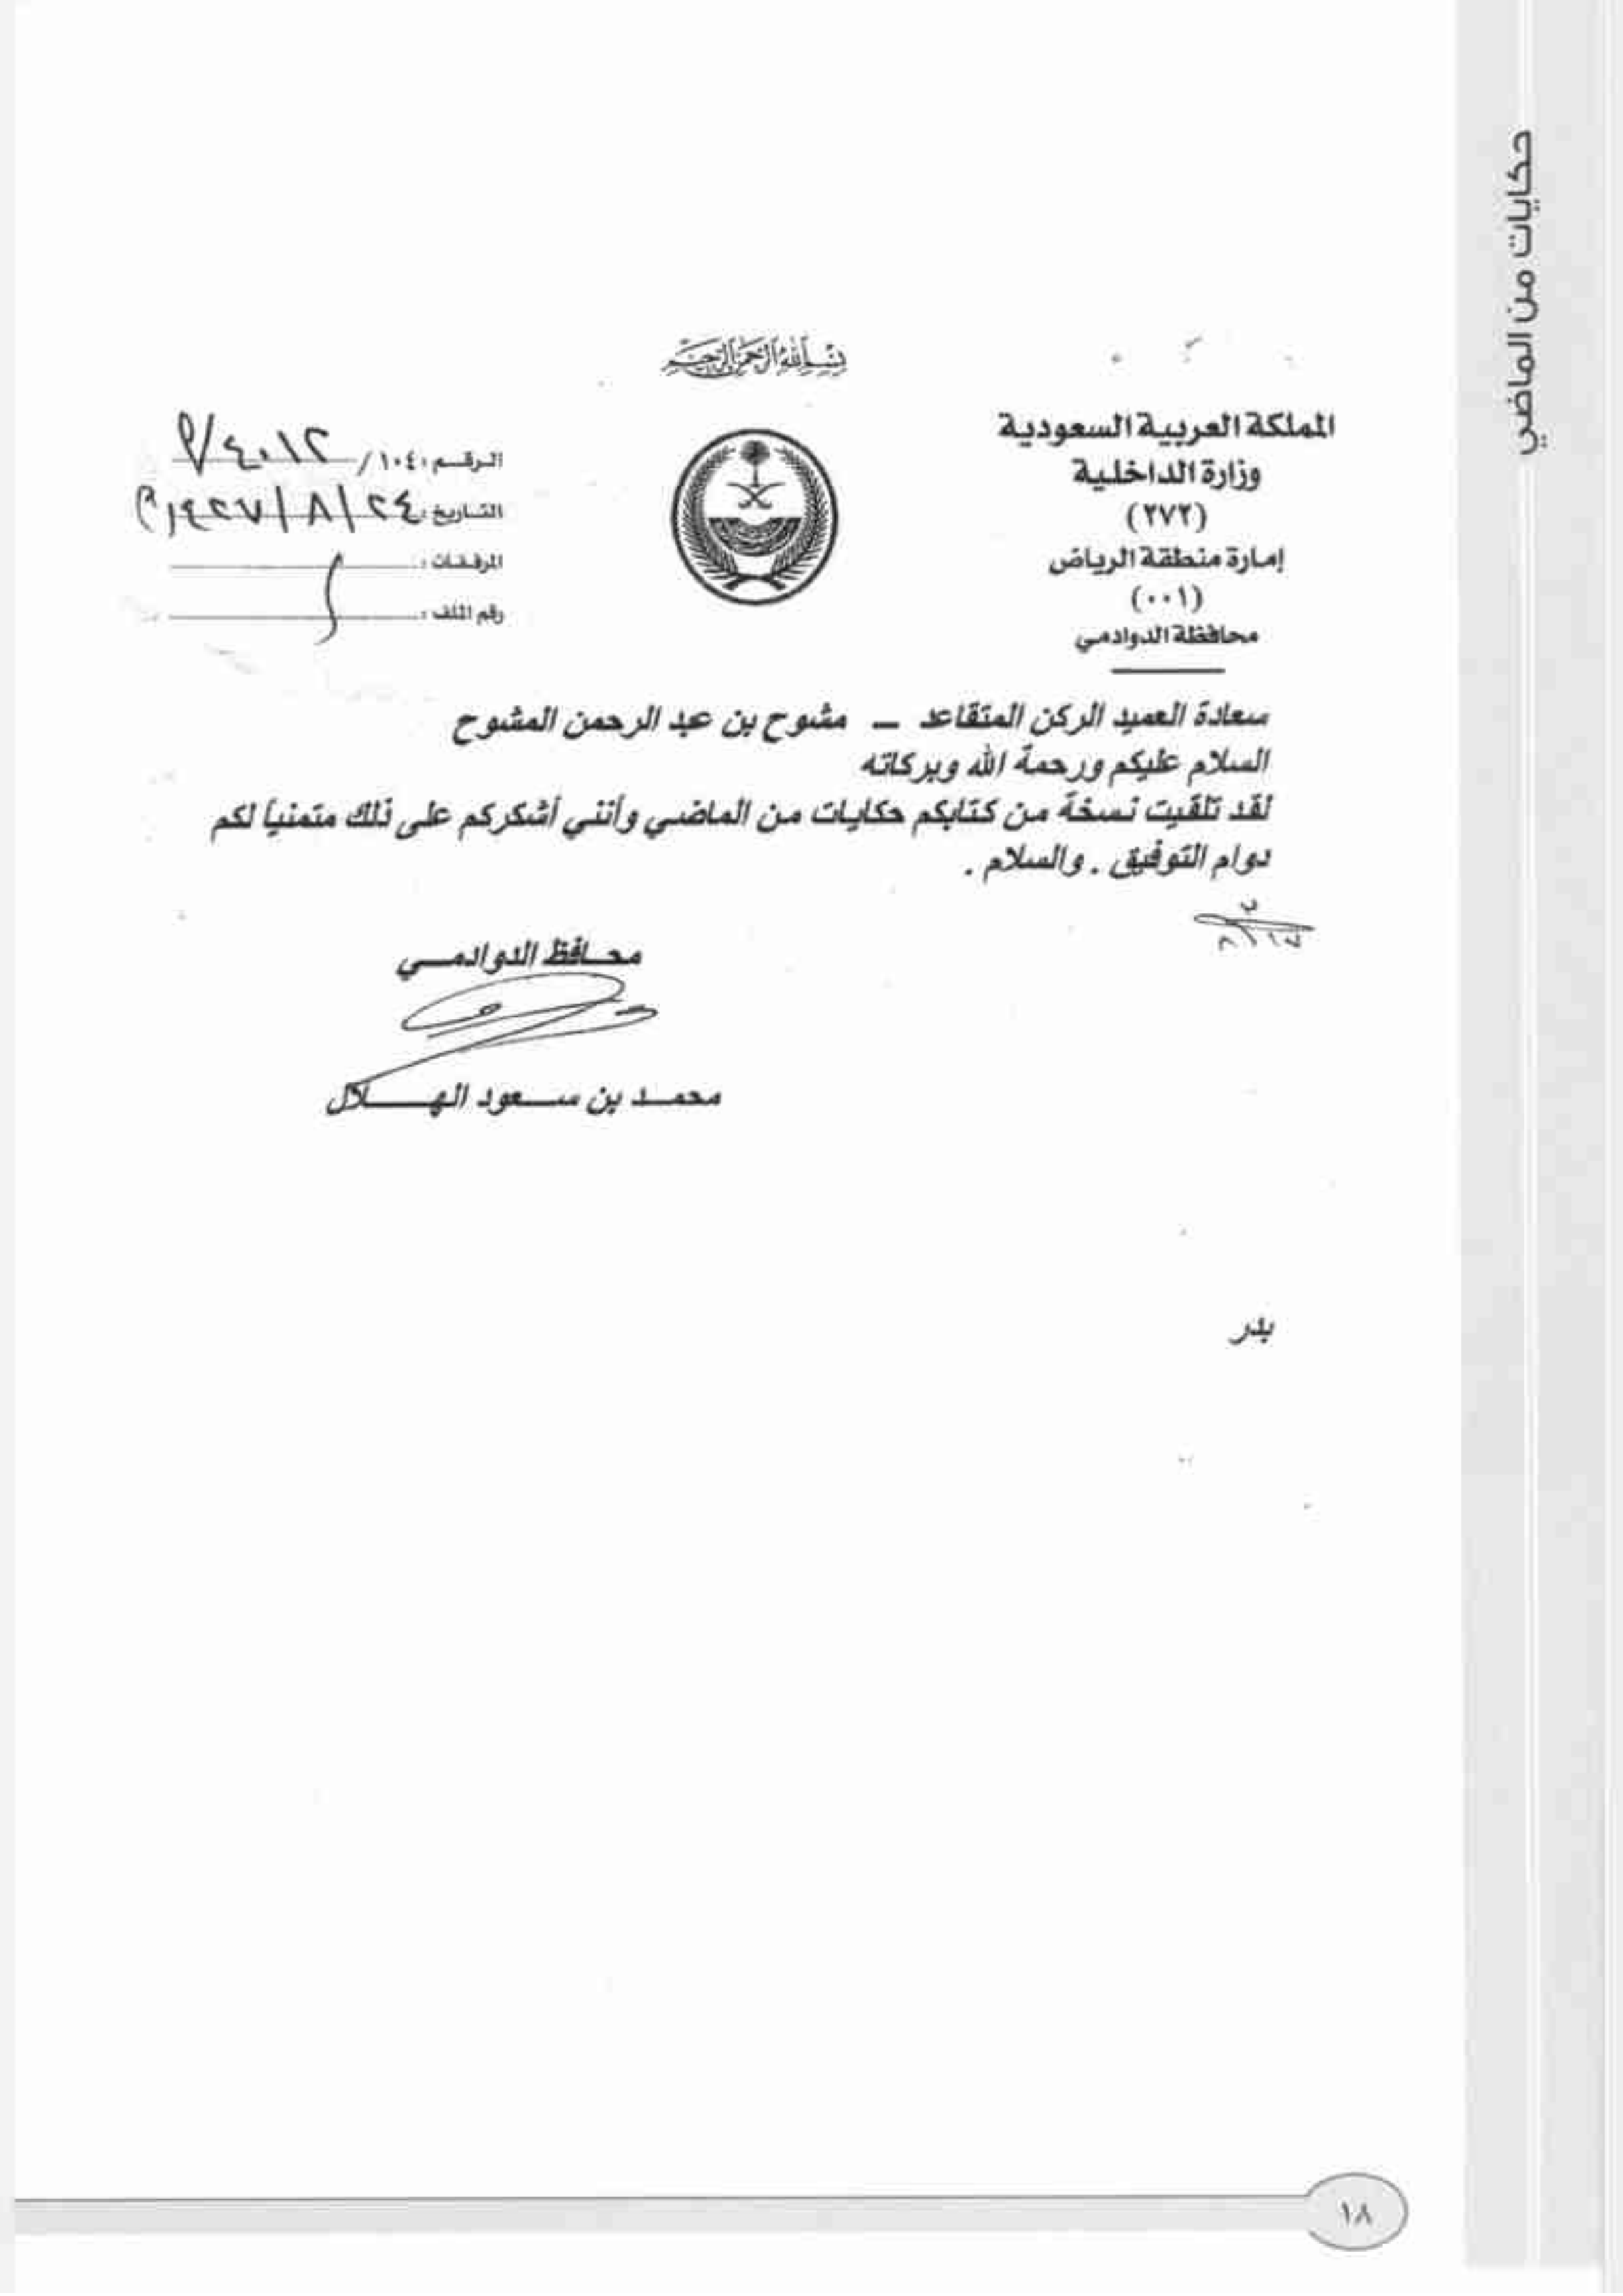 حكايات من الماضي
بسم الله الرحمن الرحيم
المملكة العربية السعودية
وزارة الداخلية
(٢٧٢)
إمارة منطقة الرياض
(٠٠١)
محافظة الدوادمي
الرقم : ١٠٤ /
التاريخ : ٢٤ / ٨ / ١٤٢٧
المرفقات :
رقم الملف :
سعادة العميد الركن المتقاعد – مشوح بن عبد الرحمن المشوح
السلام عليكم ورحمة الله وبركاته
لقد تلقيت نسخة من كتابكم حكايات من الماضي وأنني أشكركم على ذلك متمنياً لكم
دوام التوفيق . والسلام .
محـافظ الدوادمـي
محمـد بن سـعود الهـلال
بدر
١٨